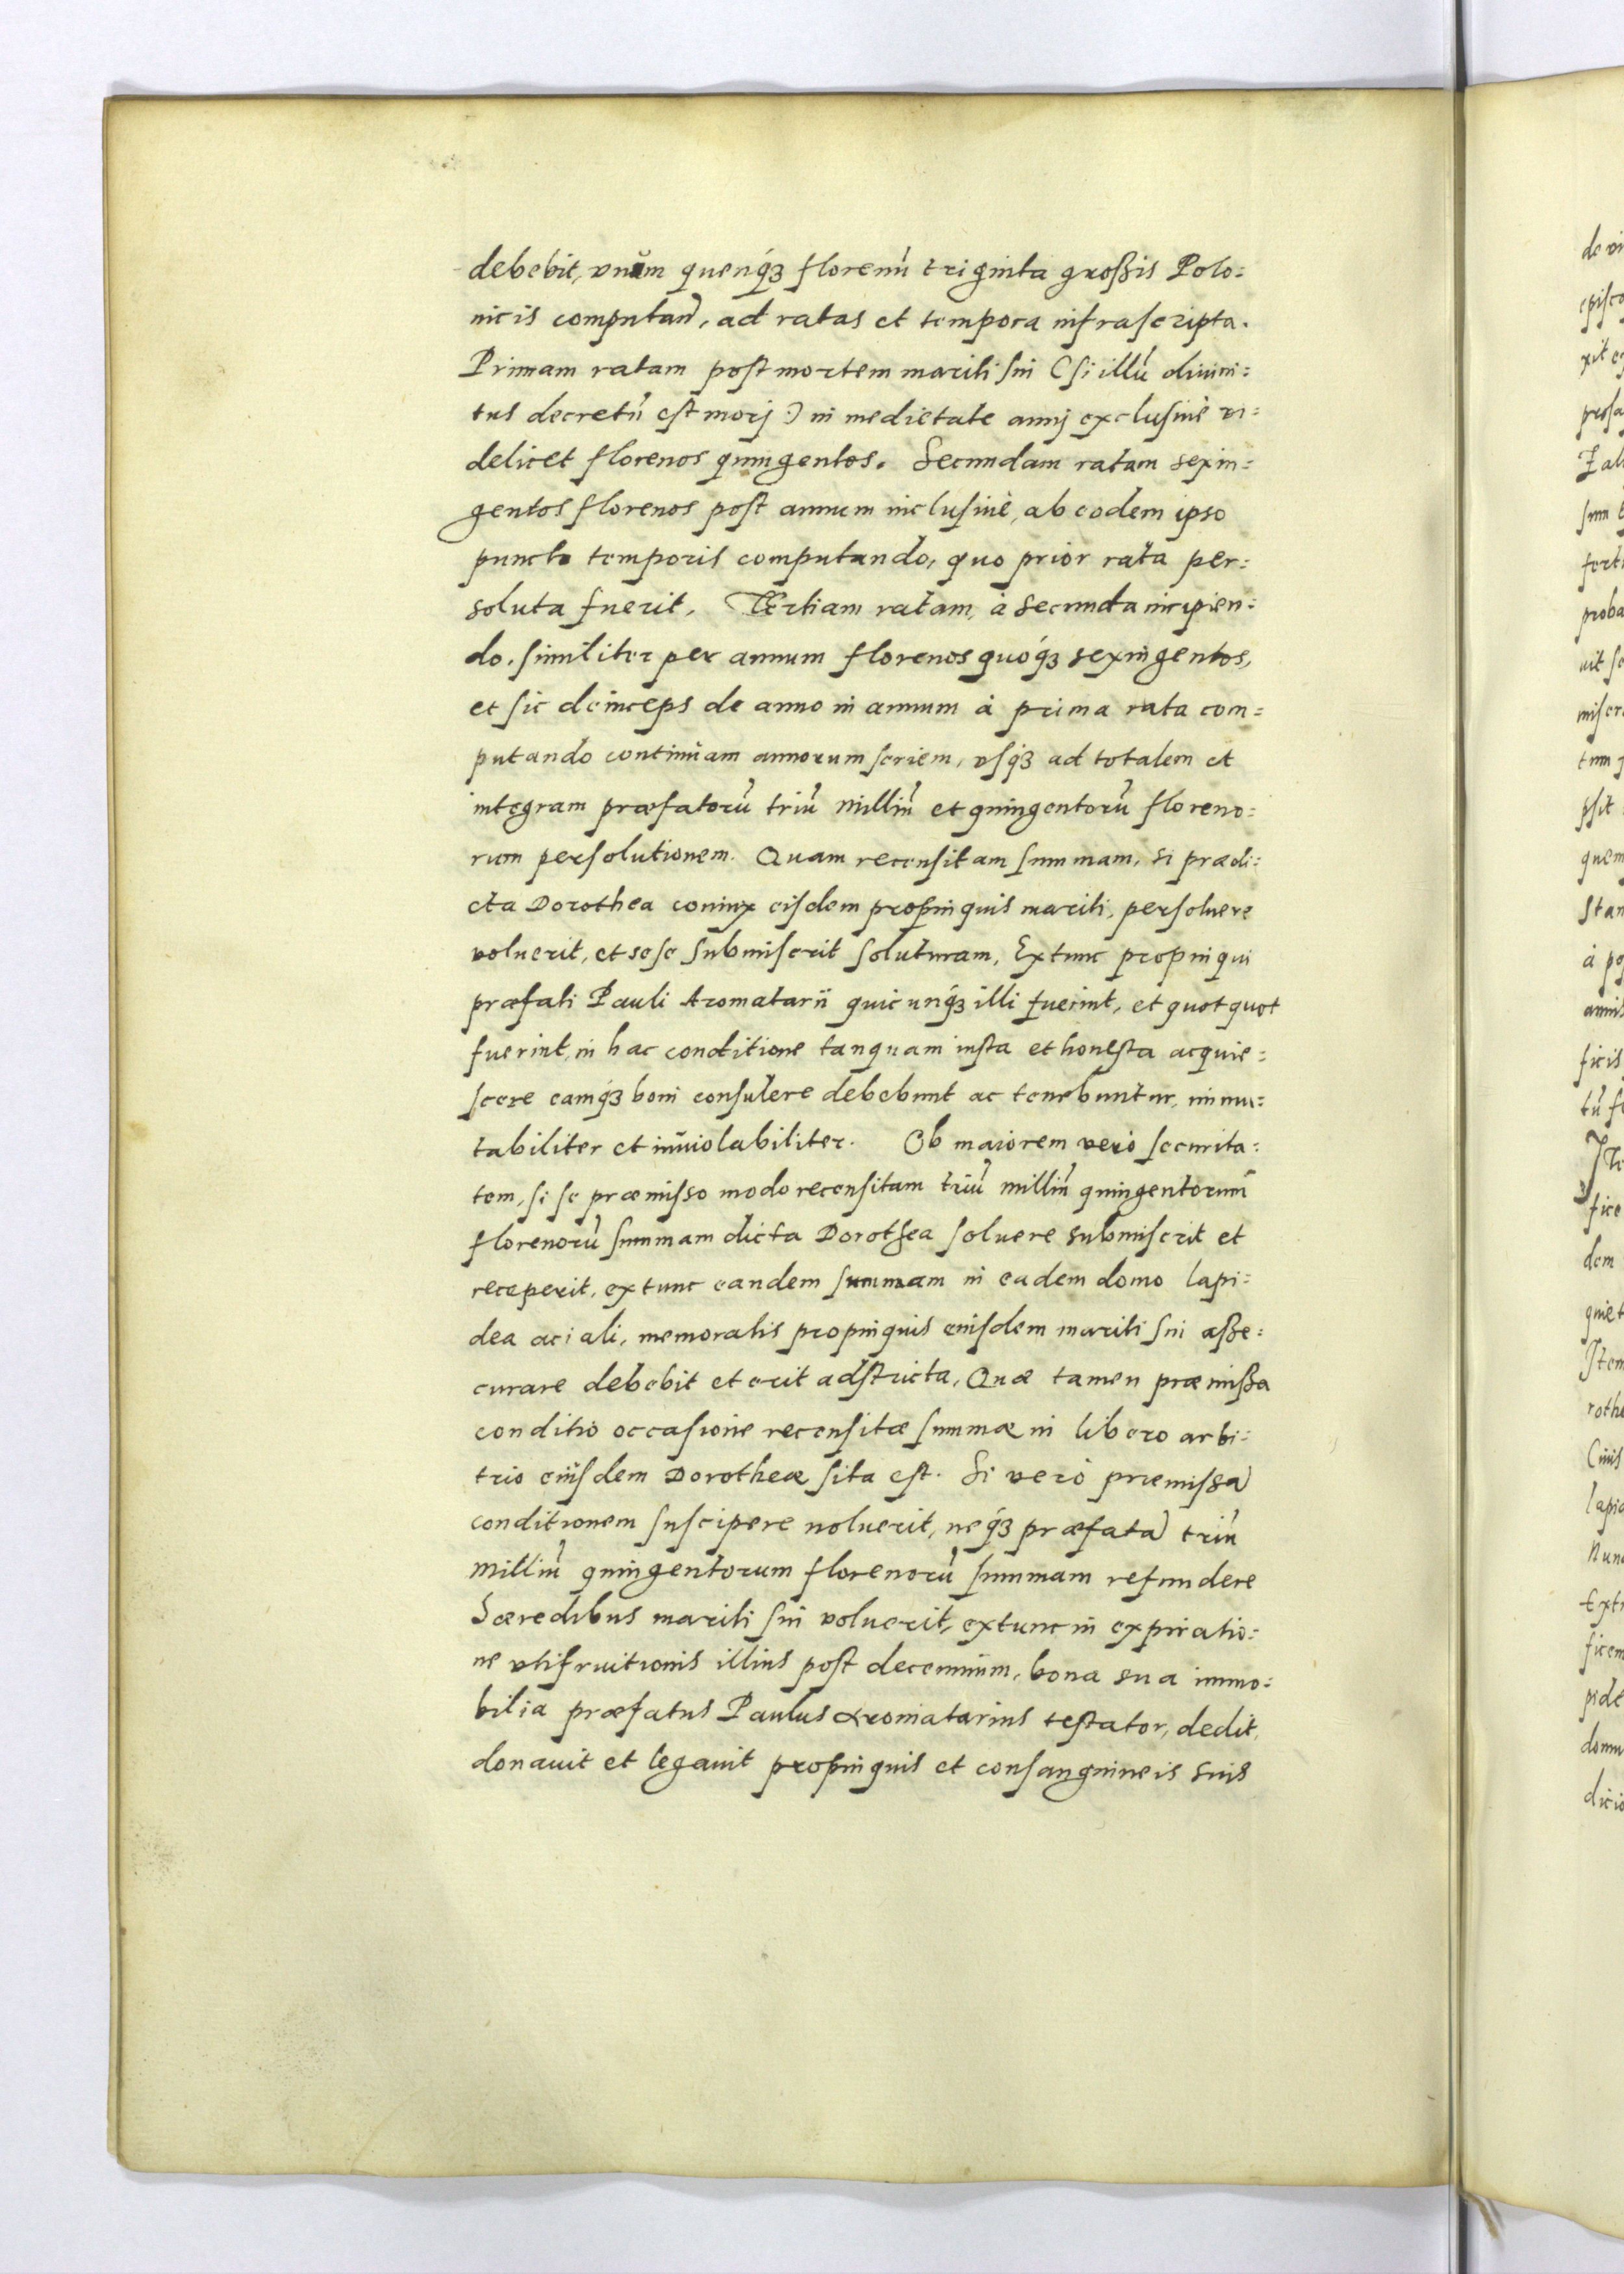 debebit, vnũm quenq́ꝫ florenũ triginta großis Polo=
nicis computan̄, ad ratas et tempora infrascripta.
Primam ratam post mortem mariti sui (si illũ diuini=
tus decretũ est morj) in medietate annj exclusiuè vi=
delicet florenos quingentos. Secundam ratam sexin=
gentos florenos post annum inclusiuè, ab eodem ipso
puncto temporis computando, quo prior rata per=
soluta fuerit. Tertiam ratam, à secunda incipien=
do, similiter per annum florenos quoq́ꝫ sexingentos,
et sic deinceps de anno in annum à prima rata com=
putando continuam annorum seriem, vsq́ꝫ ad totalem et
integram præfatorũ triũ milliũ et quingentorũ floreno=
rum persolutionem. Quam recensitam summam, si prædi=
cta Dorothea coniux eisdem propinquis mariti, persoluere
voluerit, et sese submiserit soluturam, Extunc propinqui
præfati Pauli Aromatarii quicunq́ꝫ illi fuerint, et quotquot
fuerint, in hac conditione tanquam iusta et honesta acquie=
scere eamq́ꝫ boni consulere debebunt ac tenebuntur, immu=
tabiliter et inuiolabiliter. Ob maiorem verò securita=
tem, si se præmisso modo recensitam triũ milliũ quingentorum
florenorũ summam dicta Dorothea soluere submiserit et
receperit, extunc eandem summam in eadem domo lapi=
dea aciali, memoratis propinquis eiusdem mariti sui aße=
curare debebit et erit adstricta, Quæ tamen præmißa
conditio occasione recensitæ summæ in libero arbi=
trio eiusdem Dorotheæ sita est. Si verò præmissā
conditionem suscipere noluerit, neq́ꝫ præfatā triũ
milliũ quingentorum florenorũ summam refundere
hæredibus mariti sui voluerit, extunc in expiratio=
ne vtifruitionis illius post decennium, bona sua immo=
bilia præfatus Paulus Aromatarius testator, dedit,
donauit et legauit propinquis et consanguineis suis